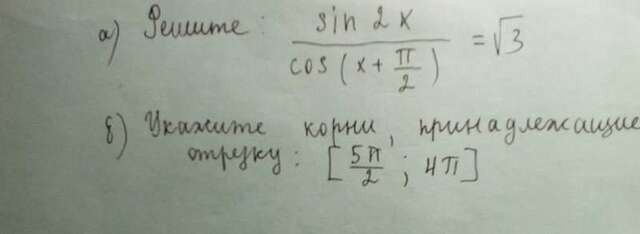 а) Решите: sin 2x / cos(x + π/2) = √3
б) Укажите корни, принадлежащие
отрезку: [5π/2; 4π]